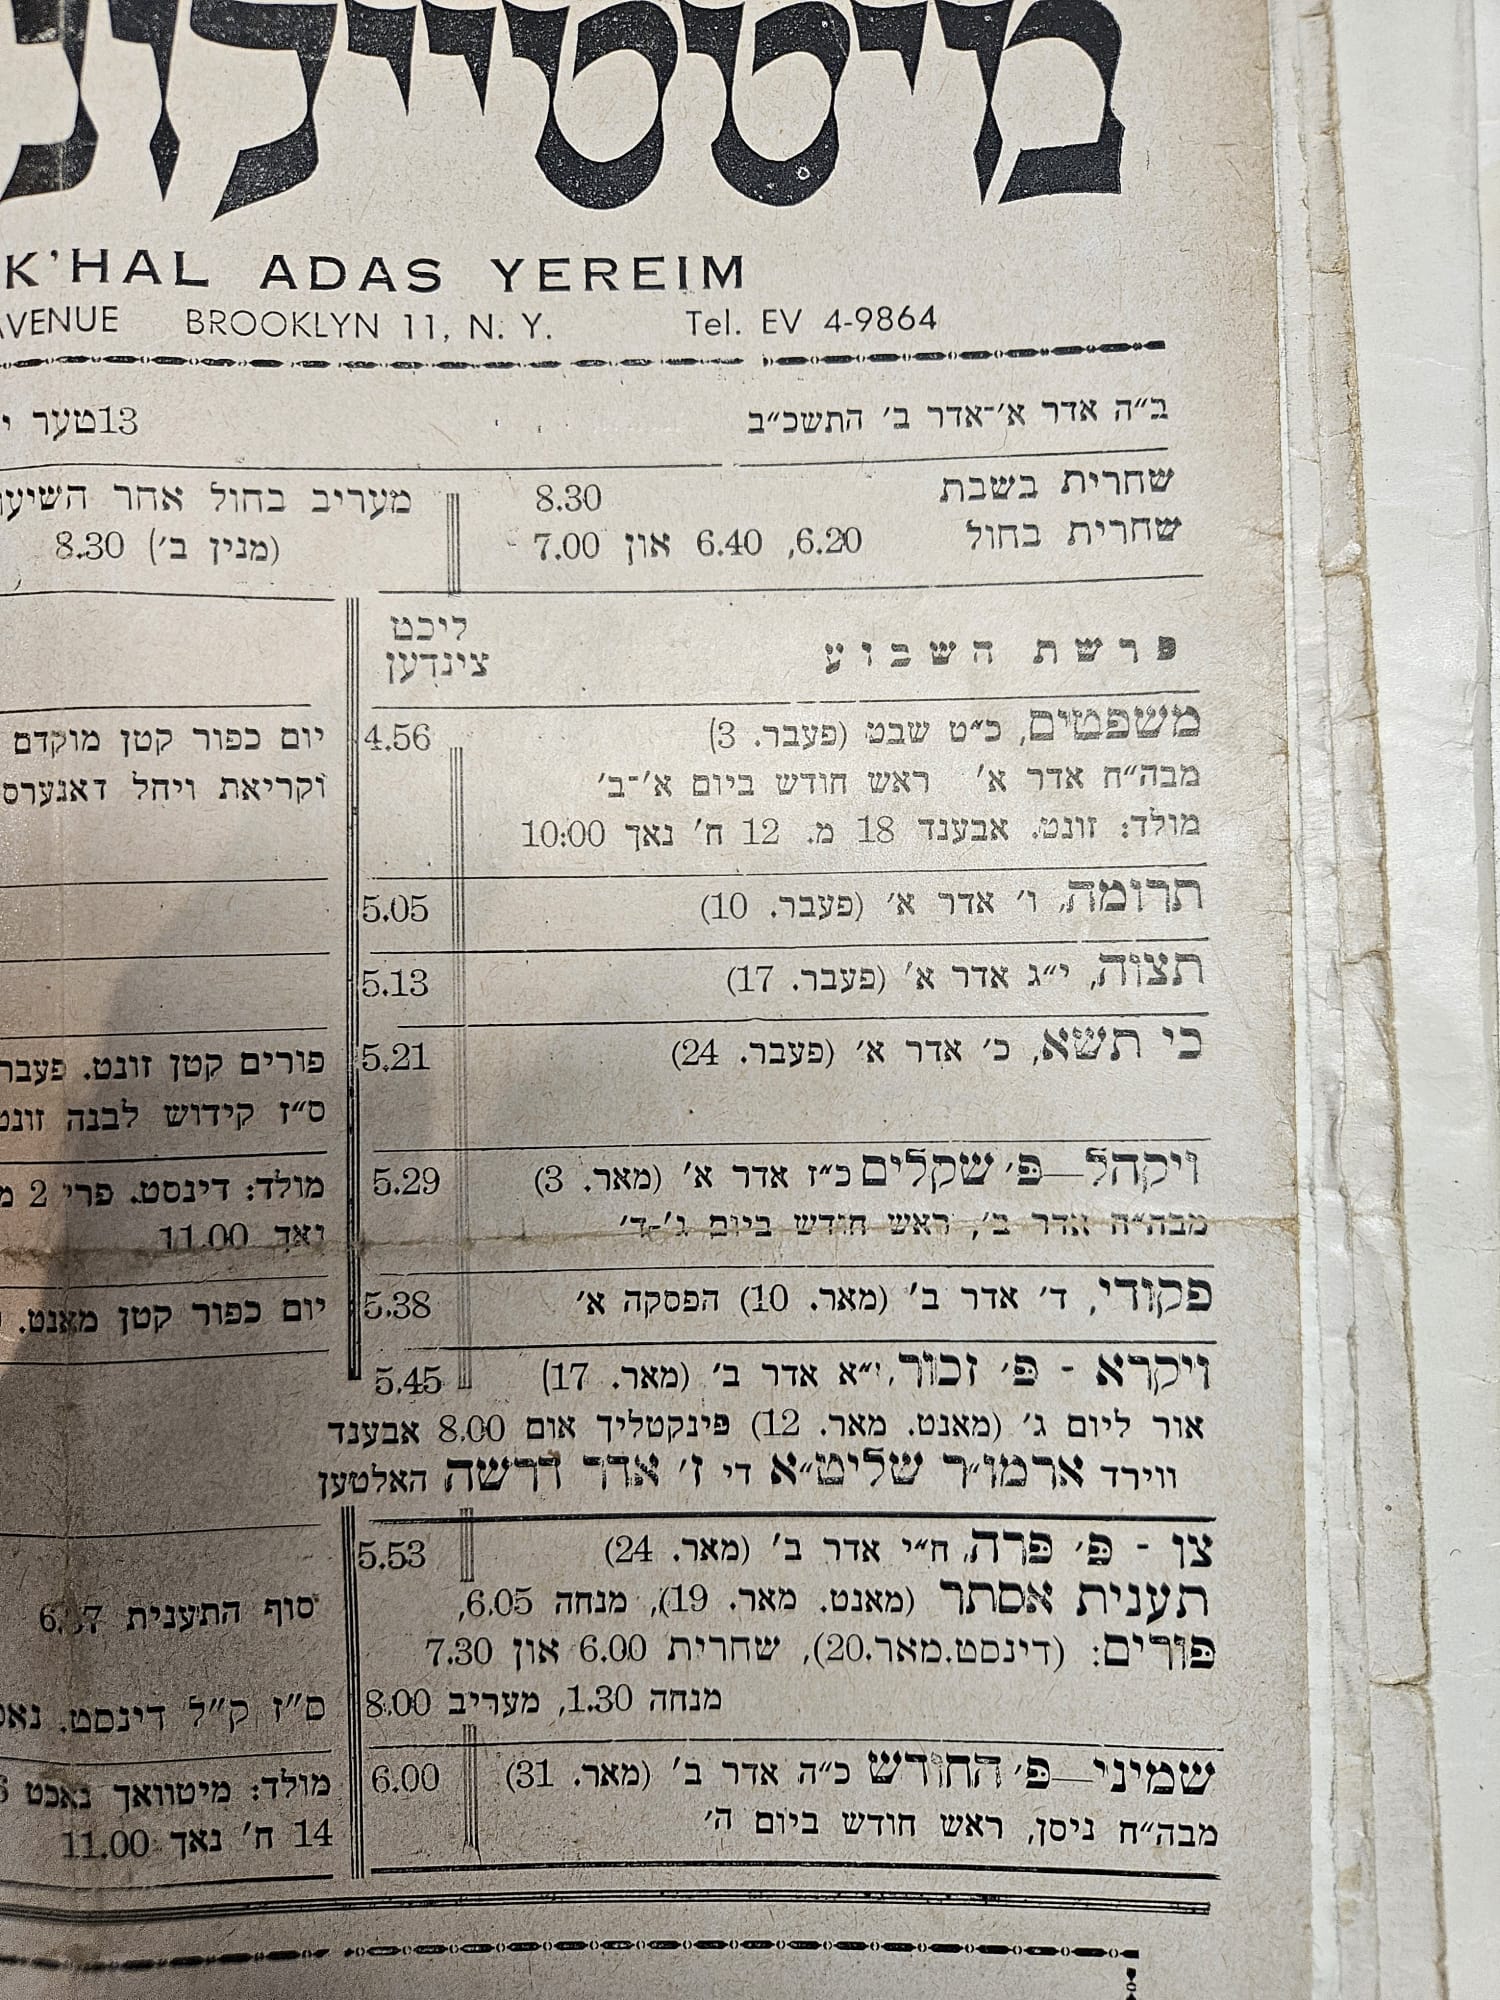 מיטטיילונ
K'HAL ADAS YEREIM
AVENUE BROOKLYN 11, N. Y. Tel. EV 4-9864
ב״ה אדר א׳-אדר ב׳ התשכ״ב
13טער י
שחרית בשבת 8.30
שחרית בחול 6.20, 6.40 און 7.00
מעריב בחול אחר השיעו
(מנין ב׳) 8.30
פרשת השבוע
ליכט
צינדען
משפטים, כ״ט שבט (פעבר. 3) 4.56
מבה״ח אדר א׳ ראש חודש ביום א׳-ב׳
מולד: זונט. אבענד 18 מ. 12 ח׳ נאך 10:00
יום כפור קטן מוקדם
וקריאת ויחל דאנערס
תרומה, ו׳ אדר א׳ (פעבר. 10) 5.05
תצוה, י״ג אדר א׳ (פעבר. 17) 5.13
כי תשא, כ׳ אדר א׳ (פעבר. 24) 5.21
פורים קטן זונט. פעבר
ס״ז קידוש לבנה זונט
ויקהל—פ׳ שקלים כ״ז אדר א׳ (מאר. 3) 5.29
מבה״ח אדר ב׳, ראש חודש ביום ג׳-ד׳
מולד: דינסט. פרי 2 מ
נאך 11.00
פקודי, ד׳ אדר ב׳ (מאר. 10) הפסקה א׳ 5.38
יום כפור קטן מאנט.
ויקרא - פ׳ זכור, י״א אדר ב׳ (מאר. 17) 5.45
אור ליום ג׳ (מאנט. מאר. 12) פינקטליך אום 8.00 אבענד
ווירד ארמו״ר שליט״א די ז׳ אדר דרשה האלטען
צו - פ׳ פרה, ח״י אדר ב׳ (מאר. 24) 5.53
תענית אסתר (מאנט. מאר. 19), מנחה 6.05,
סוף התענית
פורים: (דינסט.מאר.20), שחרית 6.00 און 7.30
מנחה 1.30, מעריב 8.00
ס״ז ק״ל דינסט. נאכ
שמיני—פ׳ החודש כ״ה אדר ב׳ (מאר. 31) 6.00
מבה״ח ניסן, ראש חודש ביום ה׳
מולד: מיטוואך נאכט 6
14 ח׳ נאך 11.00